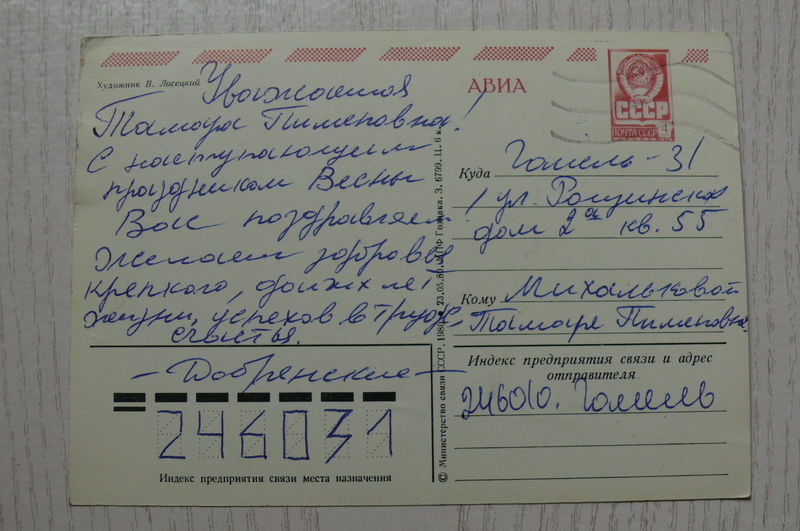 Художник В. Лисецкий
Уважаемая
Тамара Пименовна!
С наступающим
праздником Весны
Вас поздравляем!
Желаем здоровья
крепкого, долгих лет
жизни, успехов в труде,
счастья.
— Добрянские —
246031
Индекс предприятия связи места назначения
© Министерство связи СССР. 1980. 23.05.80. Гознака. З. 6799. Ц. 6 к.
АВИА
СССР
ПОЧТА СССР
Куда Гомель-31
ул. Рощинская
дом 2а кв. 55
Кому Михальковой
Тамаре Пименовне
Индекс предприятия связи и адрес
отправителя
246010. Гомель